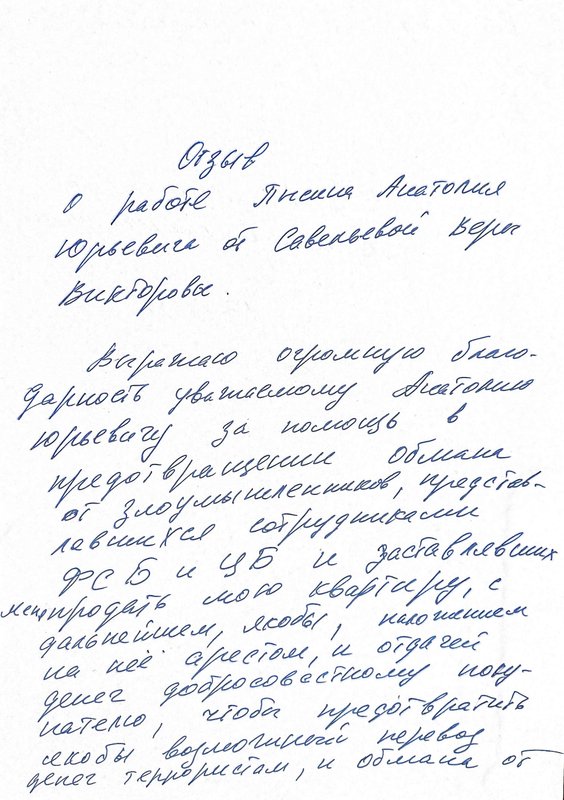 Отзыв
о работе Пысина Анатолия
Юрьевича от Савельевой Веры
Викторовы.
Выражаю огромную благо-
дарность уважаемому Анатолию
Юрьевичу за помощь в
предотвращении обмана
от злоумышленников, представ-
лавшихся сотрудниками
ФСБ и ЦБ и заставлявших
меня продать мою квартиру, с
дальнейшем, якобы, наложением
на неё арестом, и отдачей
денег добросовастному поку-
пателю, чтобы предотвратить
якобы возможный перевод
денег террористам, и обмана от